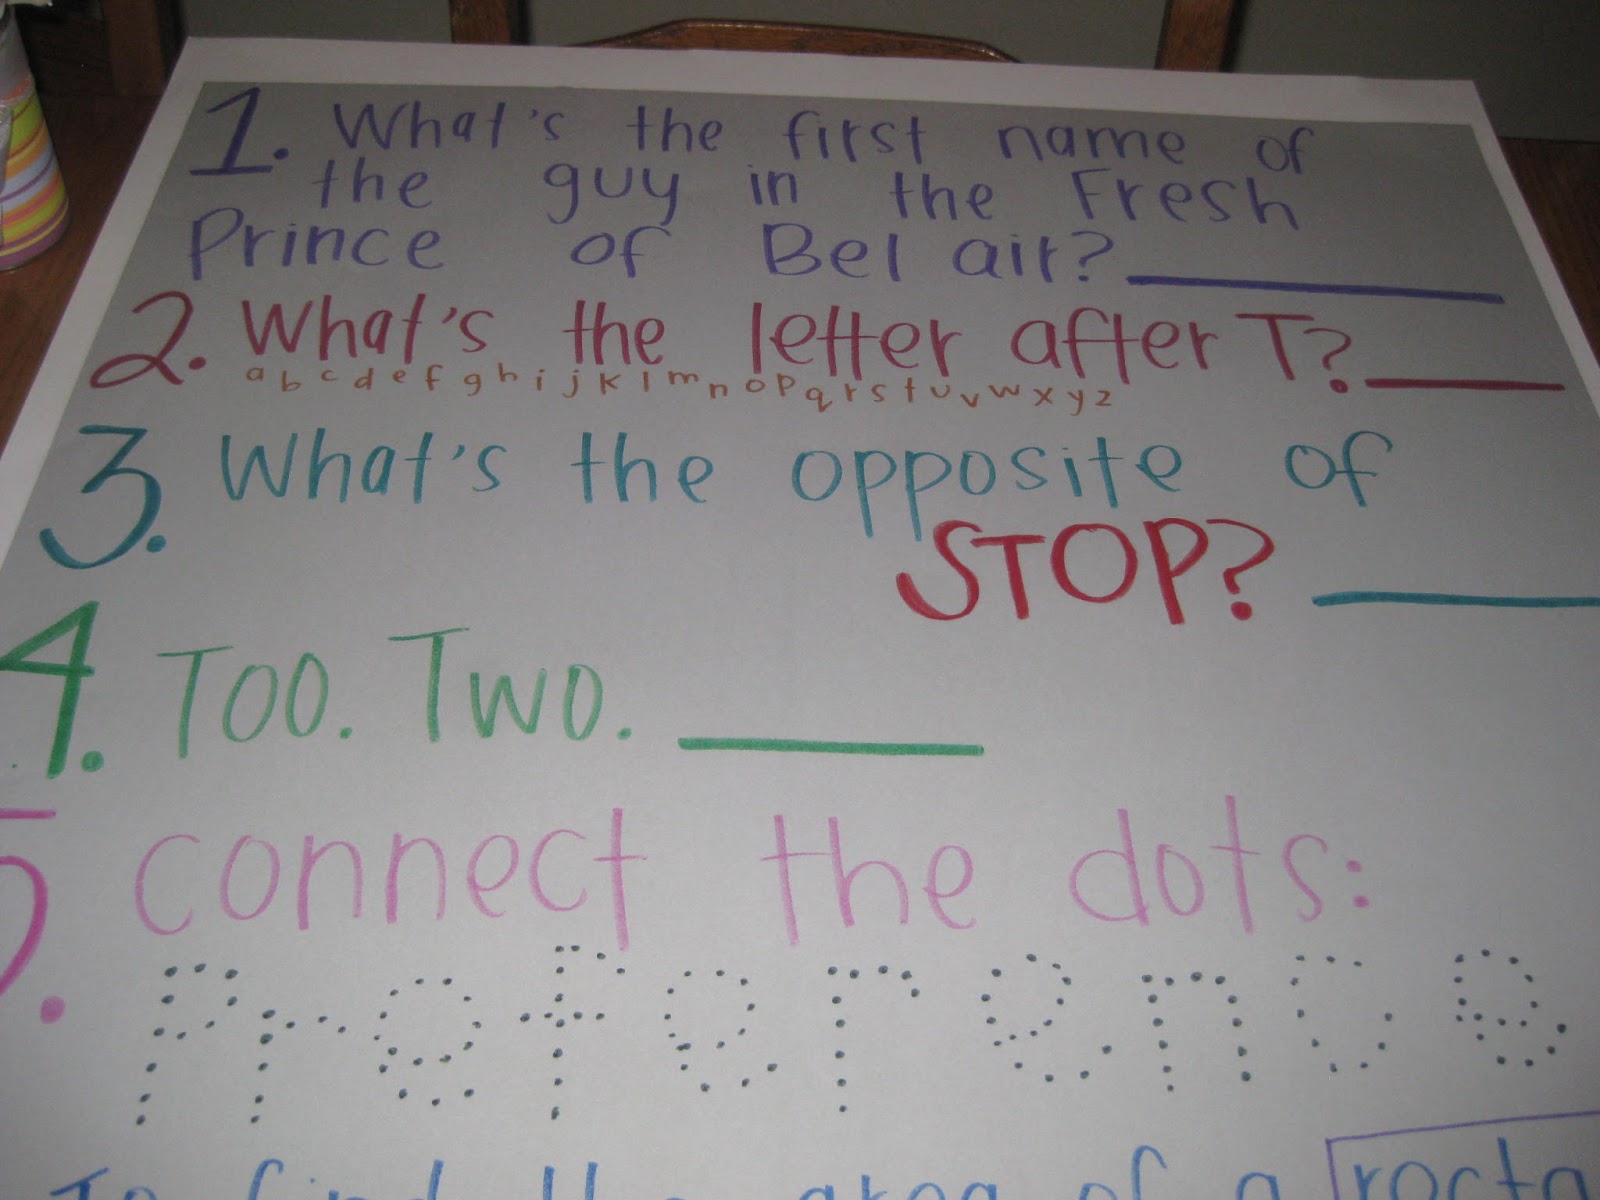 1. What's the first name of
the guy in the Fresh
Prince of Bel air?
2. What's the letter after T?
a b c d e f g h i j k l m n o p q r s t u v w x y z
3. What's the opposite of
STOP?
4. Too. Two.
5. connect the dots:
Preference
To find the area of a